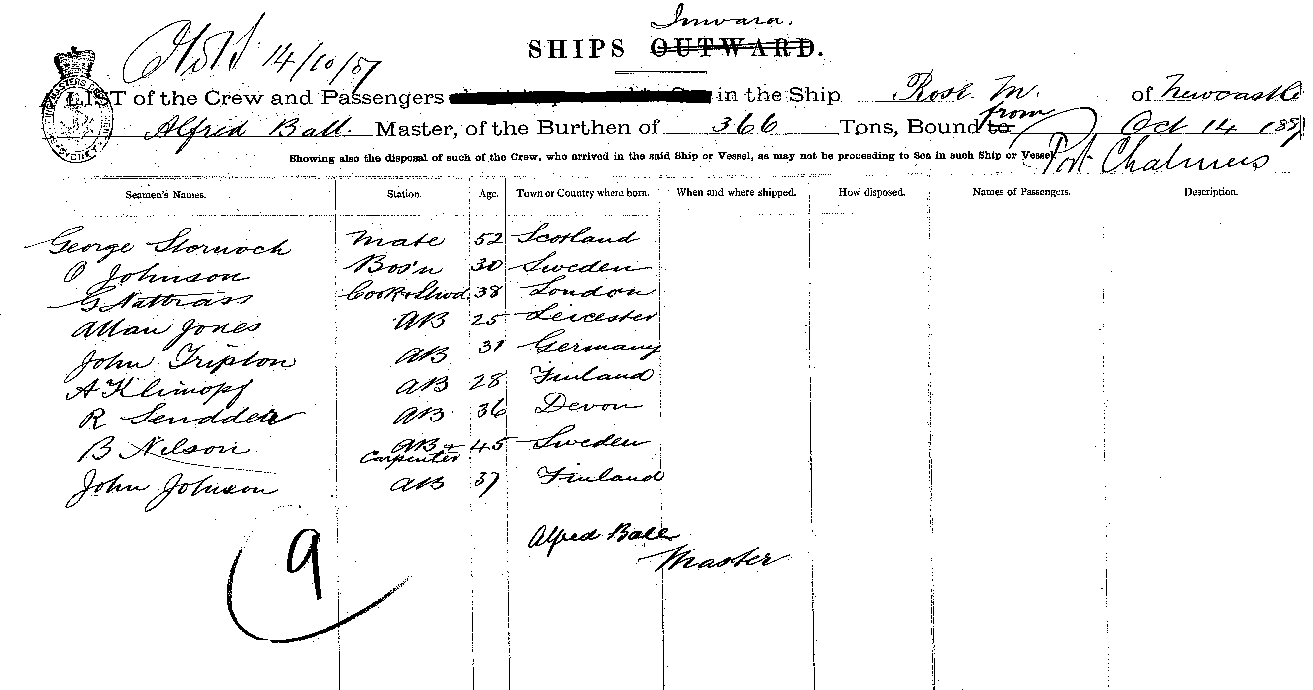 Inward.
SHIPS OUTWARD.
14/10/87
LIST of the Crew and Passengers in the Ship Rose M. of Newcastle
Alfred Ball Master, of the Burthen of 366 Tons, Bound to from Port Chalmers Oct 14 188
Showing also the disposal of such of the Crew, who arrived in the said Ship or Vessel, as may not be proceeding to Sea in such Ship or Vessel.
Seamen's Names. Station. Age. Town or Country where born. When and where shipped. How disposed. Names of Passengers. Description.
George Stornoch Mate 52 Scotland
O Johnson Bos'n 30 Sweden
G Nattrass Cook & Stwd 38 London
Allan Jones AB 25 Leicester
John Tripton AB 31 Germany
A Klimopf AB 28 Finland
R AB 36 Devon
B Nelson AB & Carpenter 45 Sweden
John Johnson AB 37 Finland
Alfred Ball
Master
9